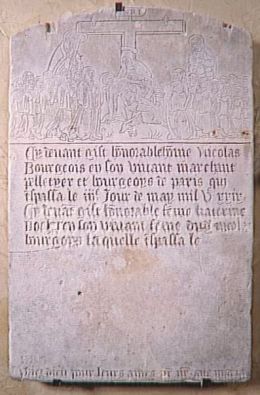 Cy devant gist honorable home Nicolas
Bourgeois en son vivant marchant
pelletyer et bourgeoys de paris qui
trespassa le iiiᵉ Jour de may mil Vᶜ
Cy devat gist honorable feme katerine
en son vivant feme dud nicolas
bourgeoys laquelle trespassa le
dieu pour leurs ames